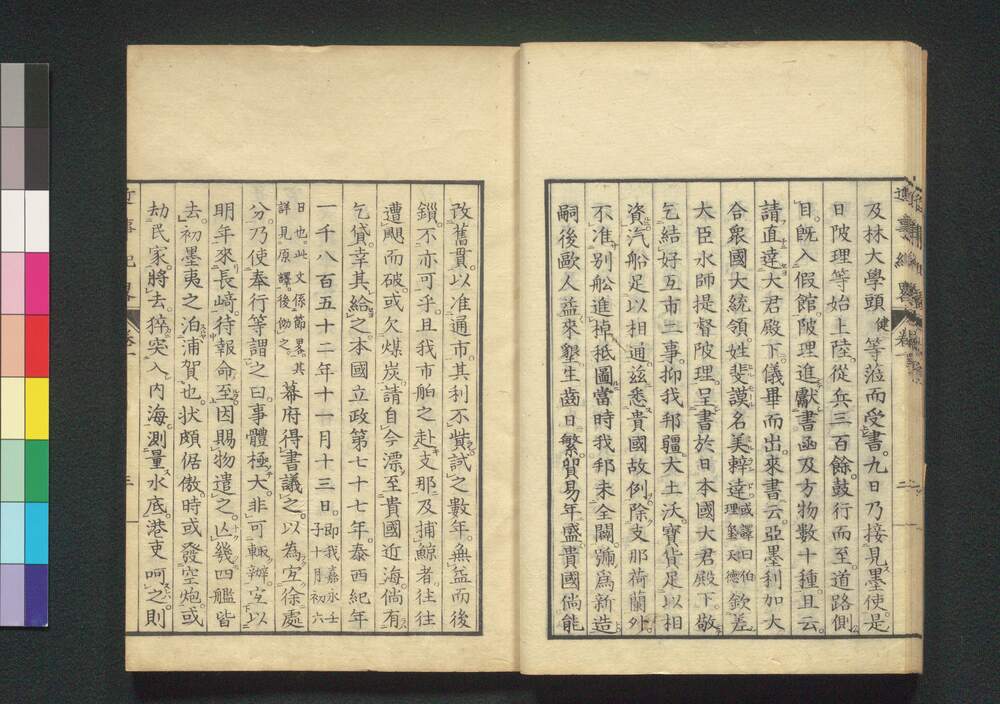 及林大學頭健等蒞而受書。九日乃接見墨使。是
日陂理等始上陸。從兵三百餘。鼓行而至。道路側
目。既入假館。陂理進獻書函及方物數十種。且云。
請直達大君殿下。儀畢而出。來書云。亞墨利加大
合衆國大統領。姓斐謨名美辢達。或譯曰伯理璽天德 欽差
大臣水師提督陂理。呈書於日本國大君殿下。敬
乞結好互市二事。抑我邦疆大土沃。寶貨足以相
資。汽船足以相通。茲悉貴國故例。除支那荷蘭外。
不准別舶進棹。抵圖當時我邦未全闢。號爲新造。
嗣後歐人益來墾。生齒日繁。貿易年盛。貴國倘能
改舊貫。以准通市。其利不貲。試之數年。無益而後
鎖。不亦可乎。且我市舶之赴支那。及捕鯨者。往往
遭颶而破。或欠煤炭。請自今漂至貴國近海。倘有
乞貸。幸其給之。本國立政第七十七年。泰西紀年
一千八百五十二年十一月十三日。即我嘉永壬子十月初六
日也。此文係節畧。其詳見原譯。後傚之。 幕府得書議之。以為宜徐處
分。乃使奉行等謂之曰。事體極大。非可輒辨。宜以
明年來長崎。待報命至。因賜物遣之。亾幾四艦皆
去。初墨夷之泊浦賀也。狀頗倨傲。時或發空炮。或
劫民家。將去。猝突入內海。測量水底。港吏呵之。則
近事紀畧 卷一 三